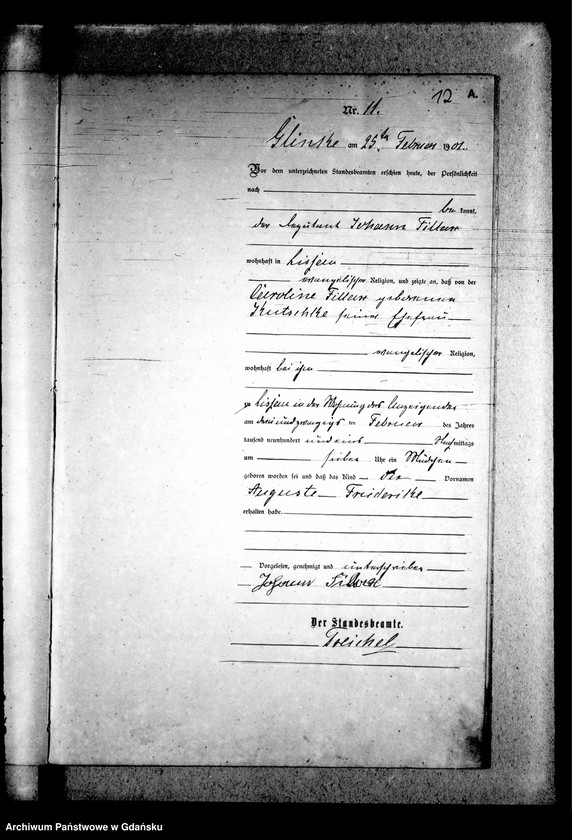 12 A.
Nr. 11.
Glinke am 25ten Februar 1901.
Vor dem unterzeichneten Standesbeamten erschien heute, der Persönlichkeit
nach
be kannt,
der Johann
wohnhaft in Lissen
evangelischer Religion, und zeigte an, daß von der
Caroline geborenen
Kutschke seiner Ehefrau
evangelischer Religion,
wohnhaft bei ihm
zu Lissen in der Wohnung des Anzeigenden
am dreiundzwanzigsten Februar des Jahres
tausend neunhundert und eins Nachmittags
um sieben Uhr ein Mädchen
geboren worden sei und daß das Kind die Vornamen
Auguste Friederike
erhalten habe.
Vorgelesen, genehmigt und unterschrieben
Johann
Der Standesbeamte.
Treichel
Archiwum Państwowe w Gdańsku